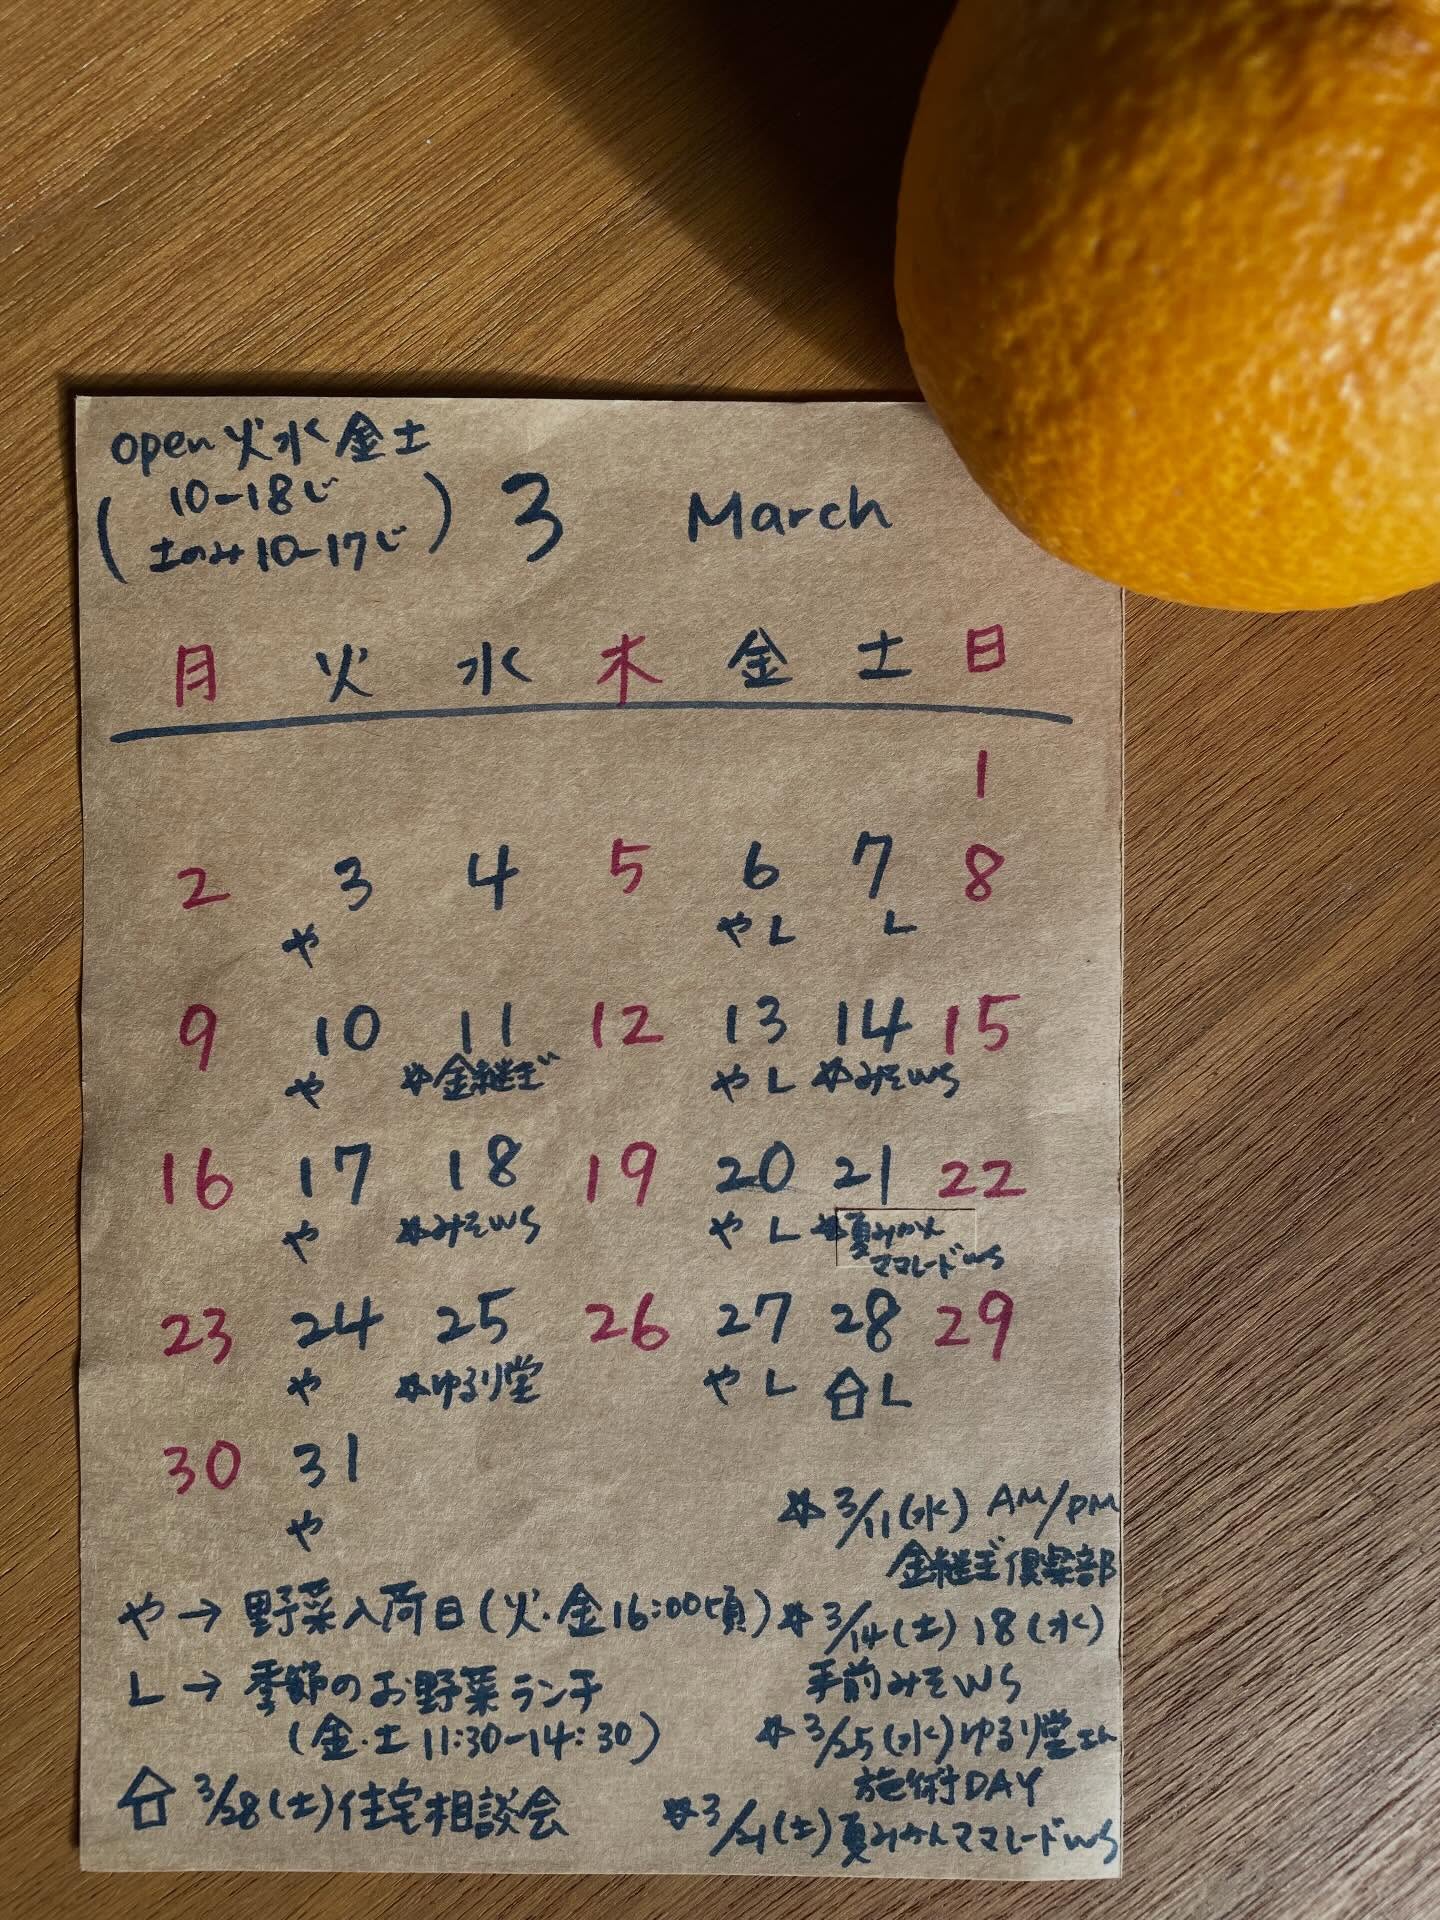 open 火水金土
(10-18じ
土のみ10-17じ)
3 March
月 火 水 木 金 土 日
1
2 3 4 5 6 7 8
や や L L
9 10 11 12 13 14 15
や ☆金継ぎ や L ☆みそWS
16 17 18 19 20 21 22
や ☆みそWS や L ☆夏みかん
ママレードWS
23 24 25 26 27 28 29
や ☆ゆるり堂 や L L
30 31
や
☆3/11(水) AM/PM
金継ぎ倶楽部
や→野菜入荷日(火・金16:00頃)
☆3/14(土)18(水)
手前みそWS
L→季節のお野菜ランチ
(金・土 11:30-14:30)
☆3/25(水)ゆるり堂さん
施術DAY
3/28(土)住宅相談会
☆3/21(土)夏みかんママレードWS